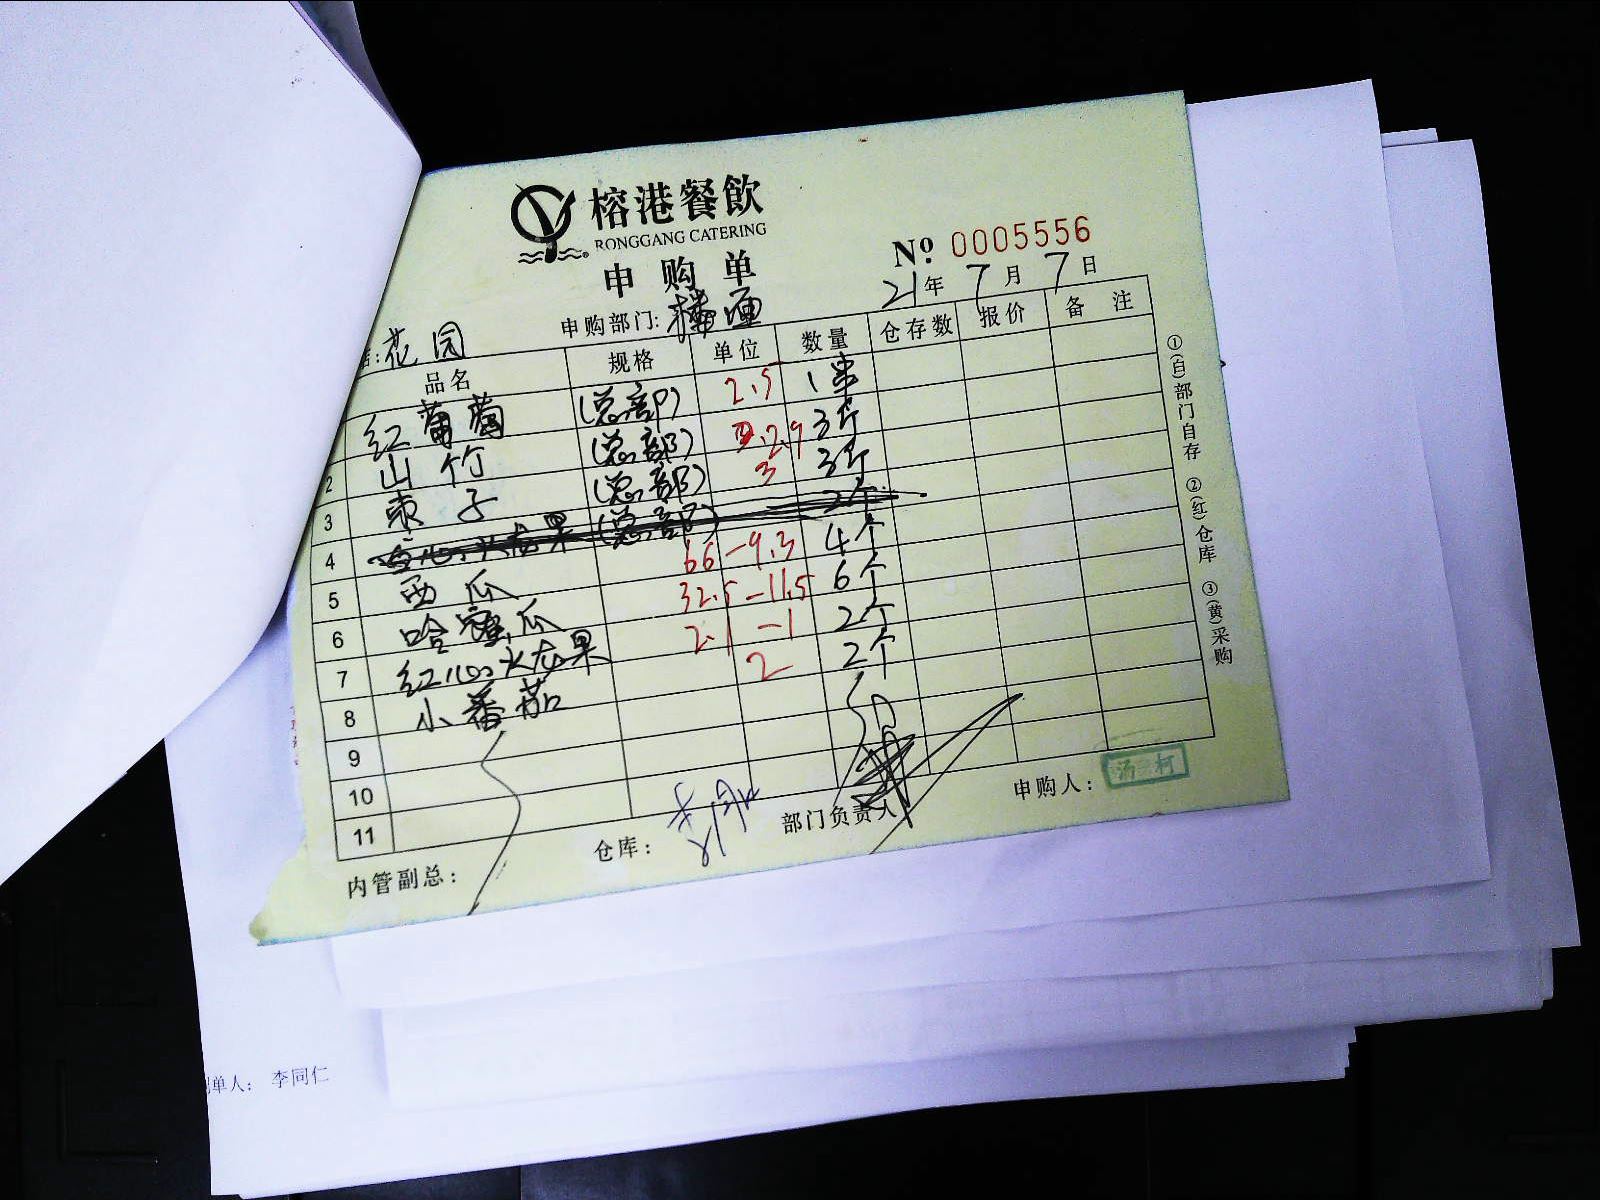 榕港餐飲
RONGGANG CATERING
申购单
№ 0005556
21年7月7日
花园
申购部门: 楼面
品名 规格 单位 数量 仓存数 报价 备注
红葡萄 (总部) 2.5 1串
2 山竹 (总部) 2.9 3斤
3 枣子 (总部) 3 3斤
4 火龙果 (总部) 2个
5 西瓜 66-9.3 4个
6 哈蜜瓜 32.5-11.5 6个
7 红心火龙果 2.1-1 2个
8 小番茄 2 2个
9
10
11
内管副总: 仓库: 部门负责人 申购人:
①(白)部门自存 ②(红)仓库 ③(黄)采购
单人: 李同仁